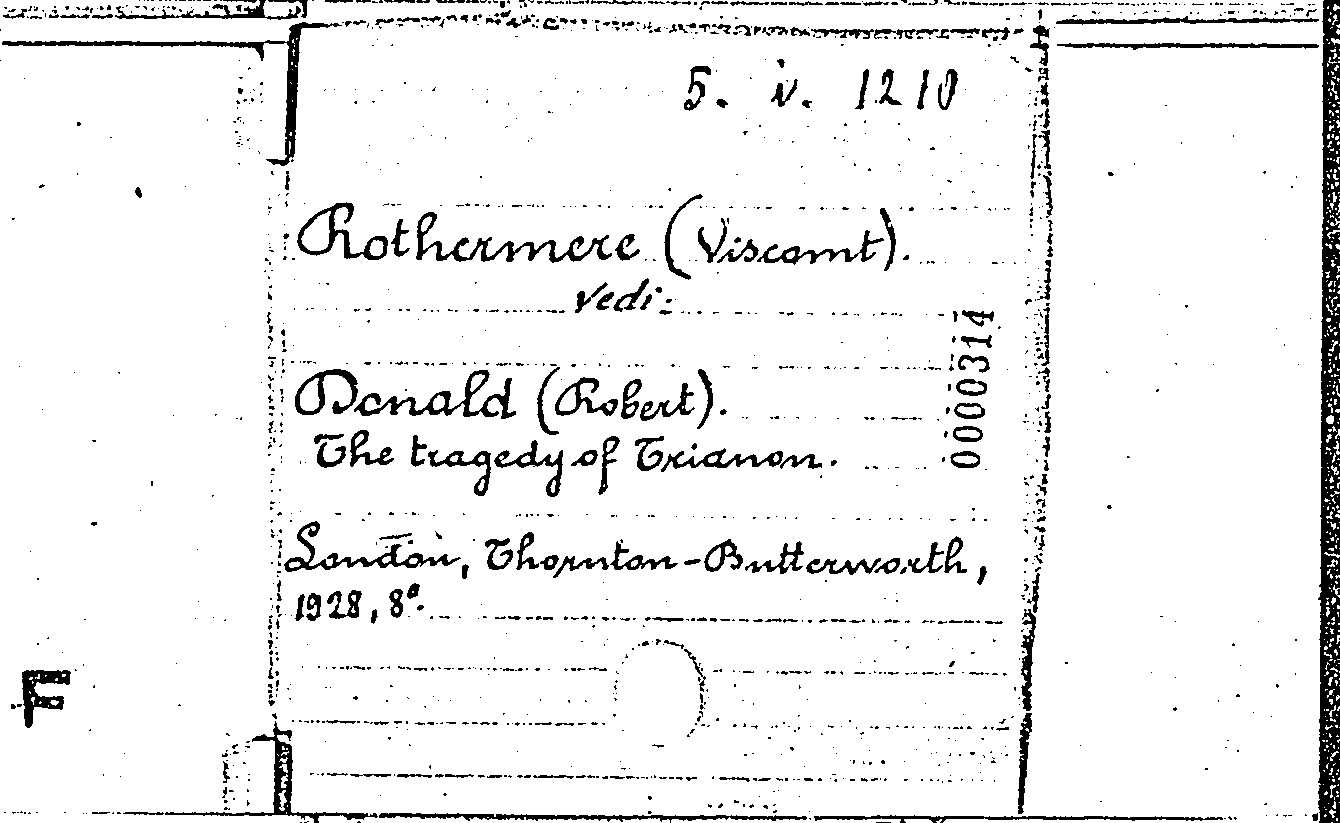 5. v. 1210
Rothermere (Viscount).
Vedi:
Donald (Robert).
The tragedy of Trianon.
London, Thornton-Butterworth,
1928, 8°.
0000314
F